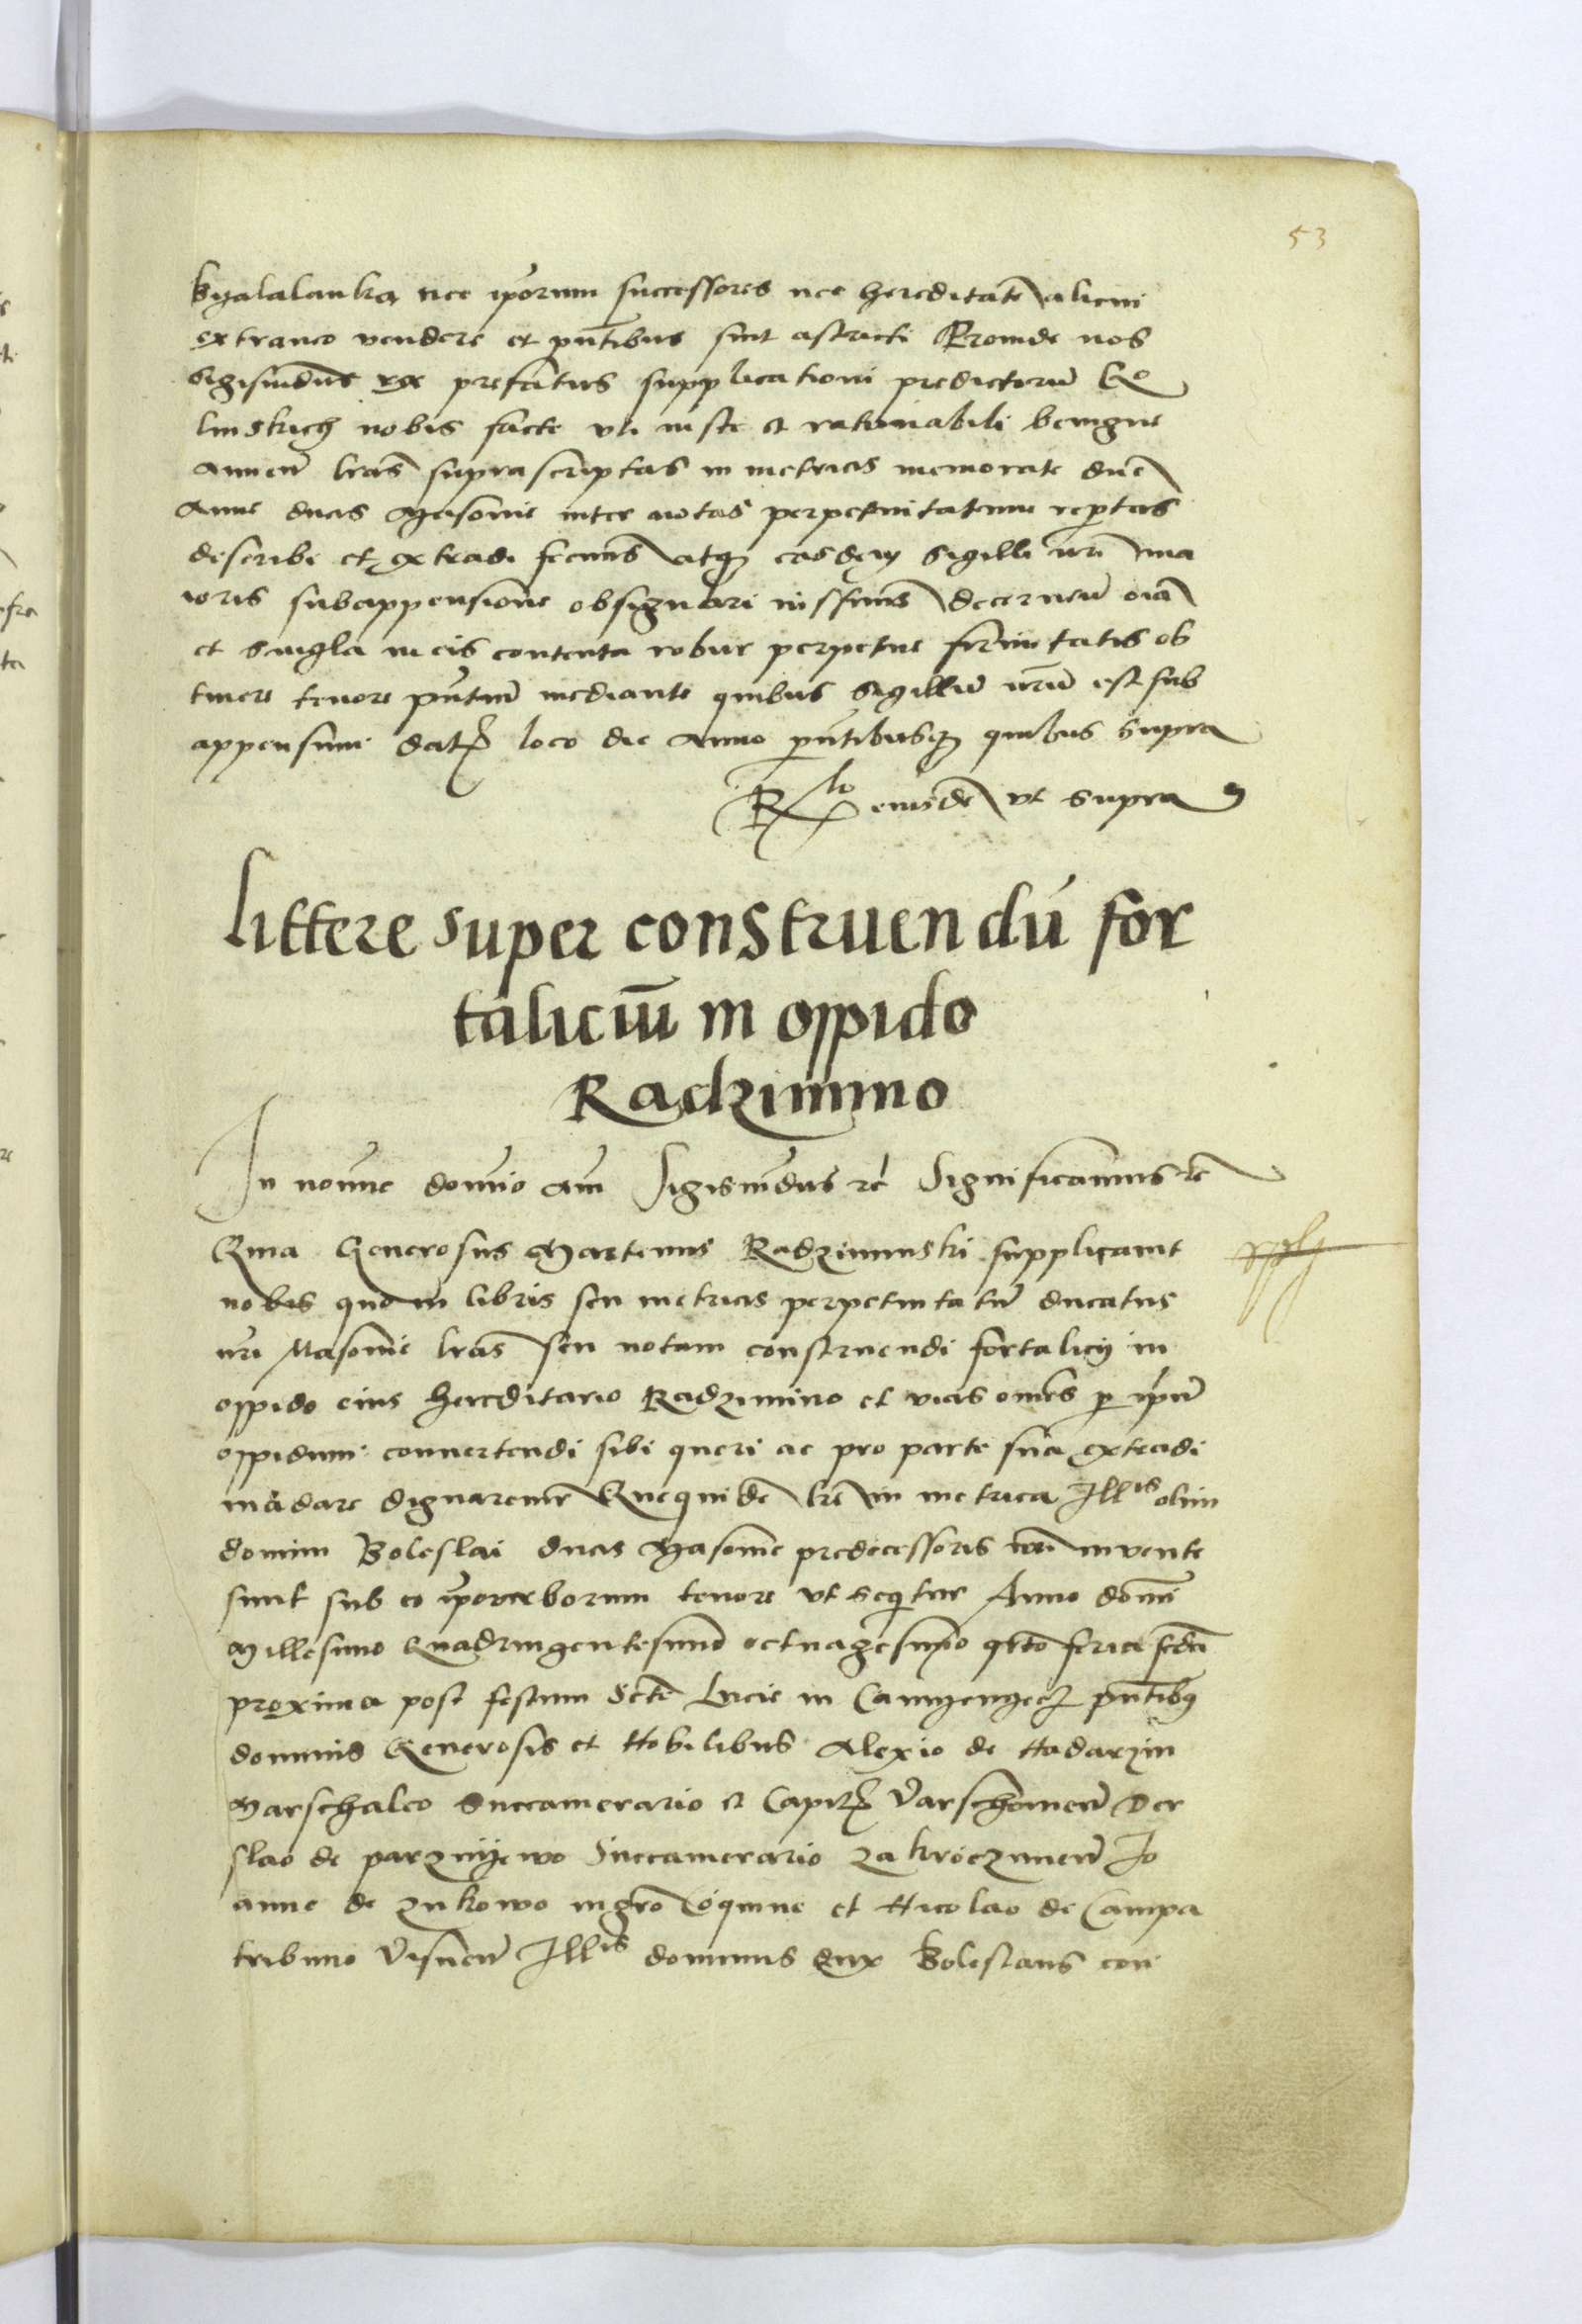 53
Byalalanka nec ipsorum successores nec hereditatē alicui
extraneo vendere et pñtibus sint astricti Proinde nos
Sigismūdus rex prefatus supplicationi predictorū Go
linskich nobis facte uti iuste et rationabili benigne
annuen̄ lras suprascriptas in metricis memorate dne
Anne ducis Masovie inter notas perpetuitatum reptas
describi et extradi fecimus atq3 easdem sigilli nri ma
ioris subappensione obsignari iussimus decernen̄ oīa
et singla in eis contenta robur perpetue firmitatis ob
tinere tenore pñtium mediante quibus sigillū nrūm est sub
appensum Dat loco die Anno pñtibusq3 quibus supra
Rlo eiusdē ut supra
Littere super construendū for
taliciū in oppido
Radzimino
In noīe domīo am̄ Sigismūdus rc̄ Significamus rc̄
Quia Generosus Martinus Radziminski supplicavit
nobis quō in libris seu metricis perpetuitatū ducatus
nri Masovie lras seu notam construendi fortalicii in
oppido eius hereditario Radzimino et vias omēs p ipm̄
oppidum convertendi sibi queri ac pro parte sua extradi
mādare dignaremr Quequidē lre in metrica Illis olim
domini Boleslai ducis Masovie predecessoris nri invente
sunt sub eo ipo verborum tenore ut seqitur Anno domi
Millesimo Quadringentesimo octuagesimo qrto feria scda
proxima post festum Scte Lucie in Camyenyecz pñtibq3
dominis Generosis et Nobilibus Alexio de Nadarzin
Marschalco Succamerario et Capit Varschovien̄ Der
slao de parznyewo Succamerario Zakroczimen̄ Jo
anne de Zukowo mgro Coquine et Nicolao de Campa
tribuno Visnen̄ Illis dominus dux Boleslaus con